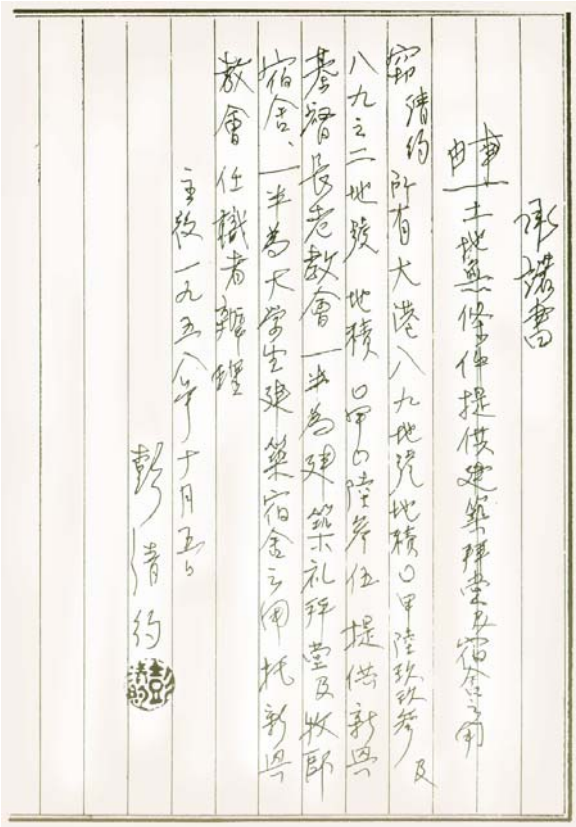 承諾書
事由 土地無條件提供建築拜堂及宿舍之用
竊清約所有大港八九地號地積〇甲陸玖玖參及
八九之二地號地積〇甲〇陸參伍提供新興
基督長老教會一半為建築礼拜堂及牧師
宿舍、一半為大学生建築宿舍之用托新興
教會任職者辦理
主後一九五八年十月五日
彭清約
彭清約